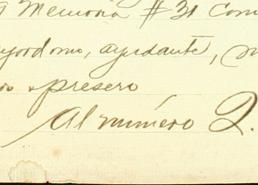 a Memoria # 31 Com
ayordomo, ayudante,
presero
Al número 2.